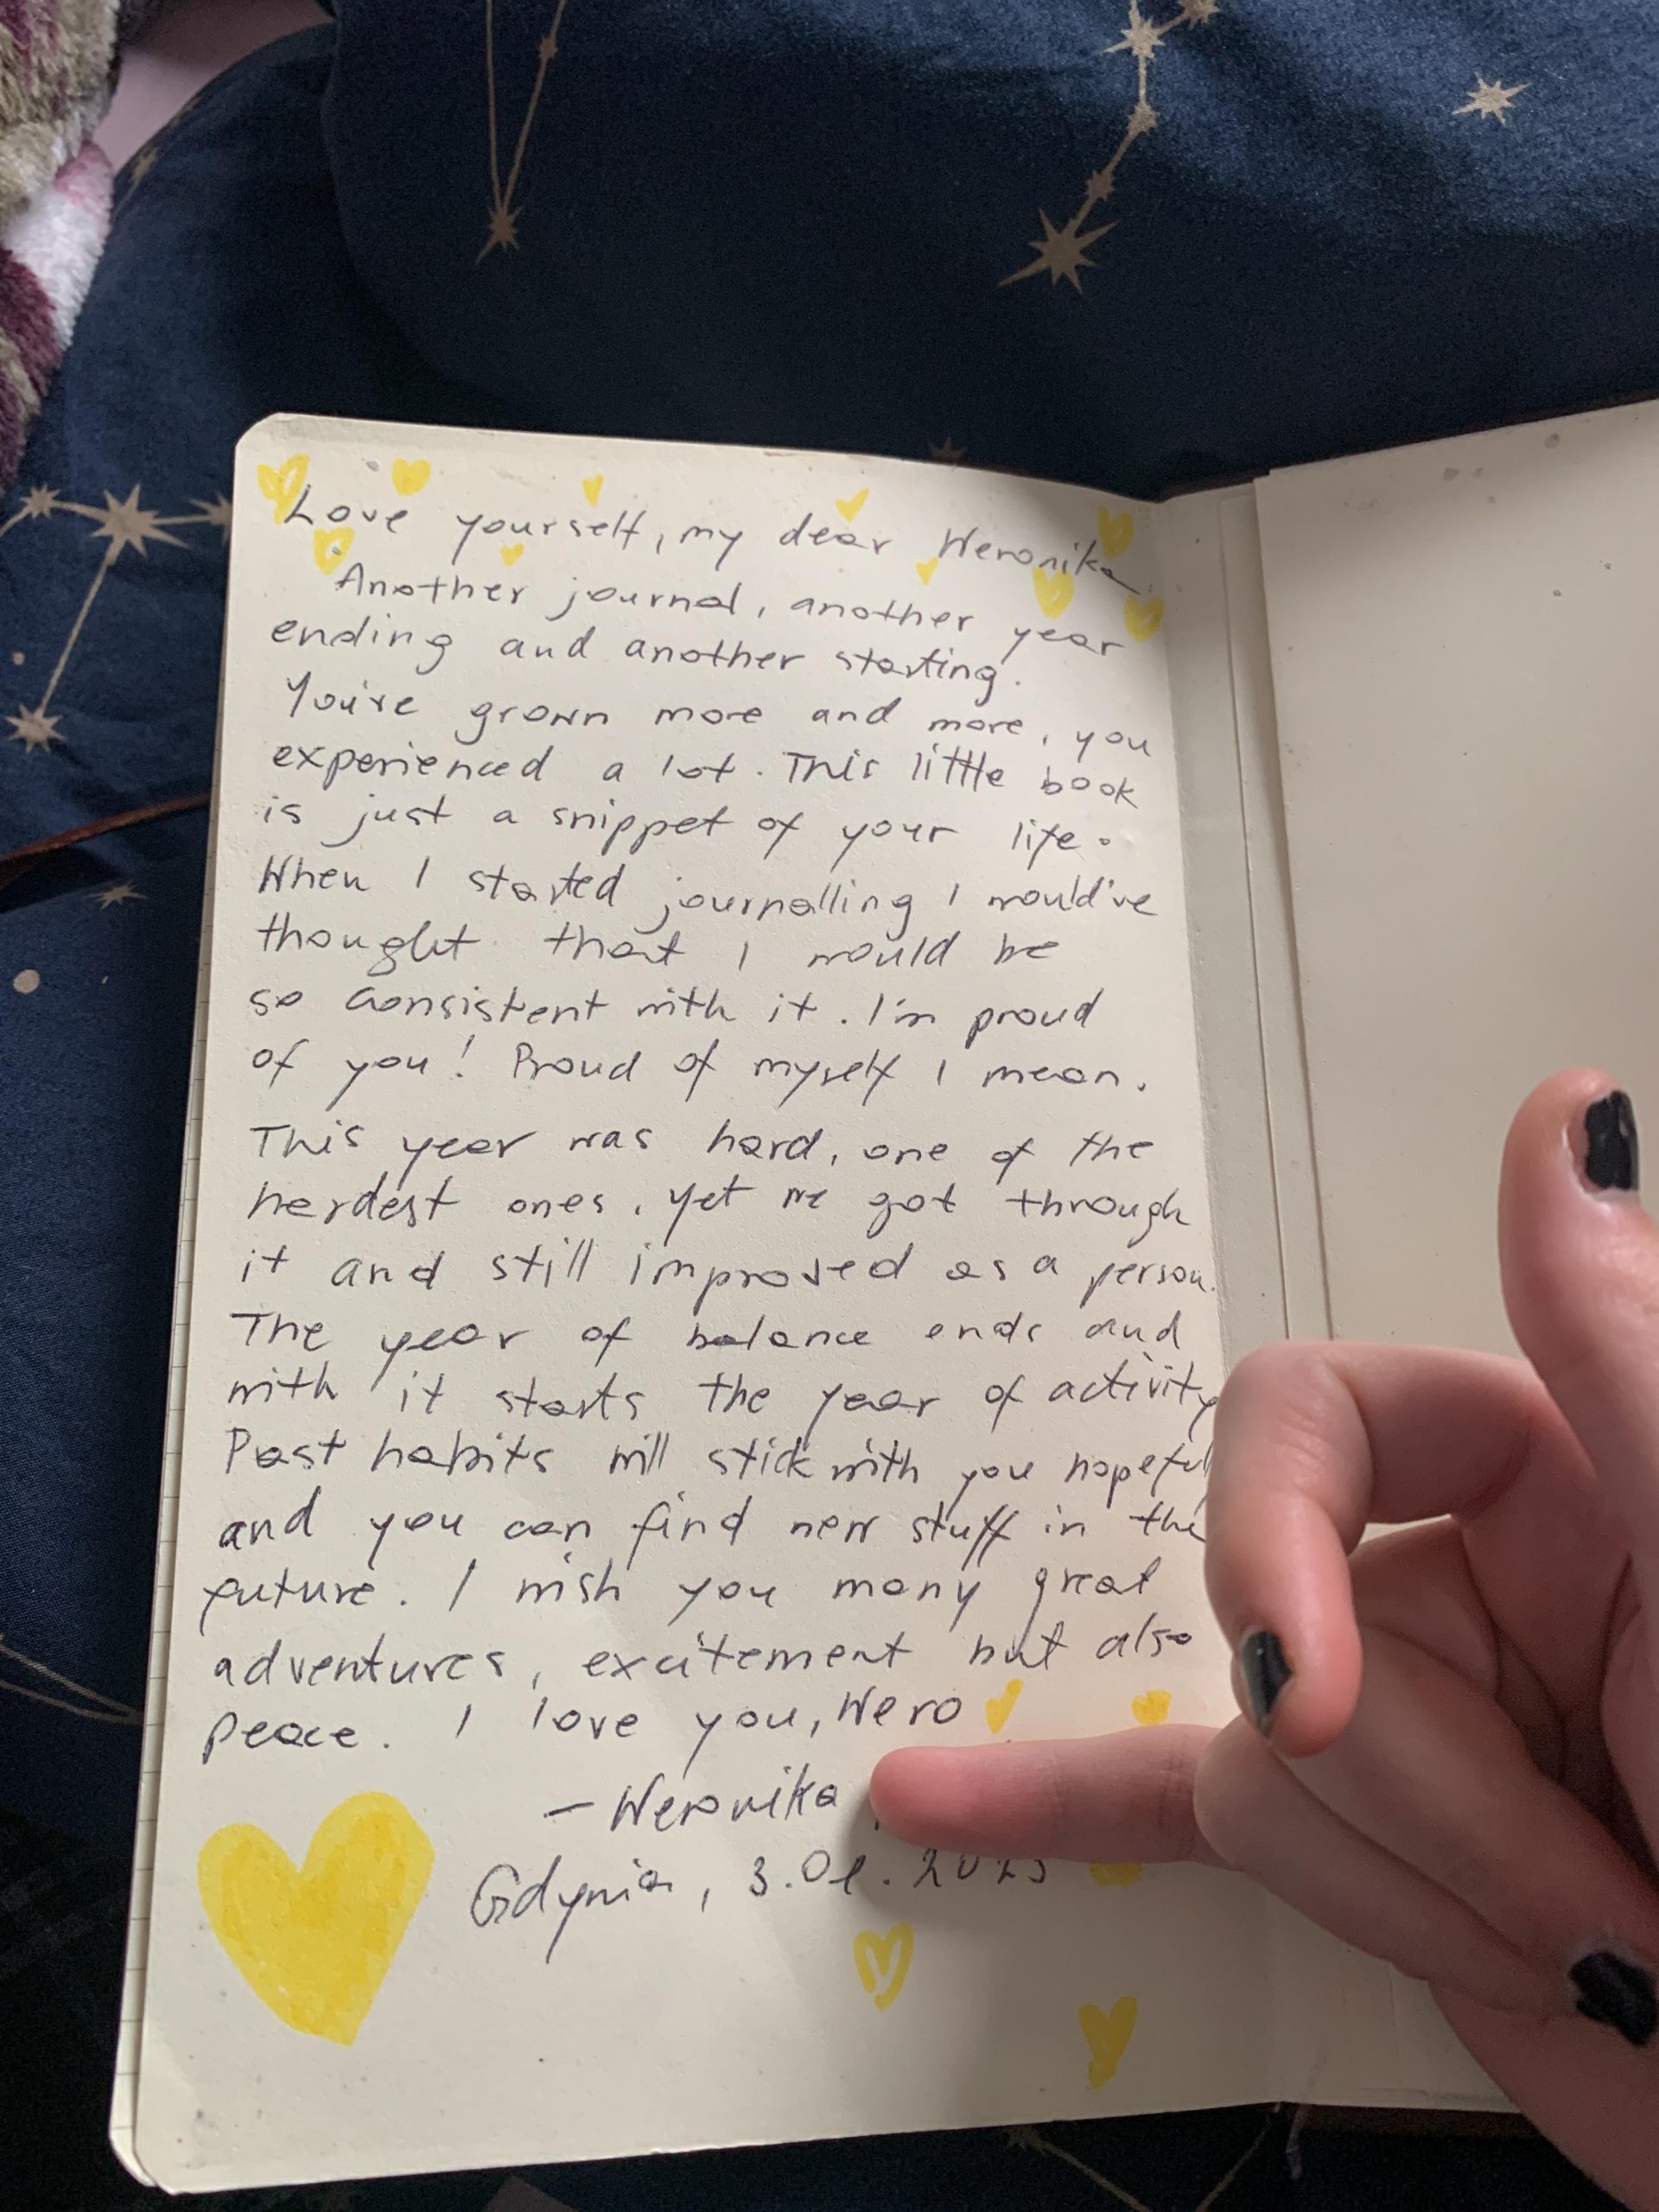 Love yourself, my dear Weronika.
Another journal, another year
ending and another starting.
You've grown more and more, you
experienced a lot. This little book
is just a snippet of your life.
When I started journalling I would've
thought that I would be
so consistent with it. I'm proud
of you! Proud of myself I mean.
This year was hard, one of the
hardest ones, yet we got through
it and still improved as a person.
The year of balance ends and
with it starts the year of activity
Past habits will stick with you hopeful
and you can find new stuff in the
future. I wish you many great
adventures, excitement but also
peace. I love you, Wero
- Weronika
Gdynia, 3.01.2023